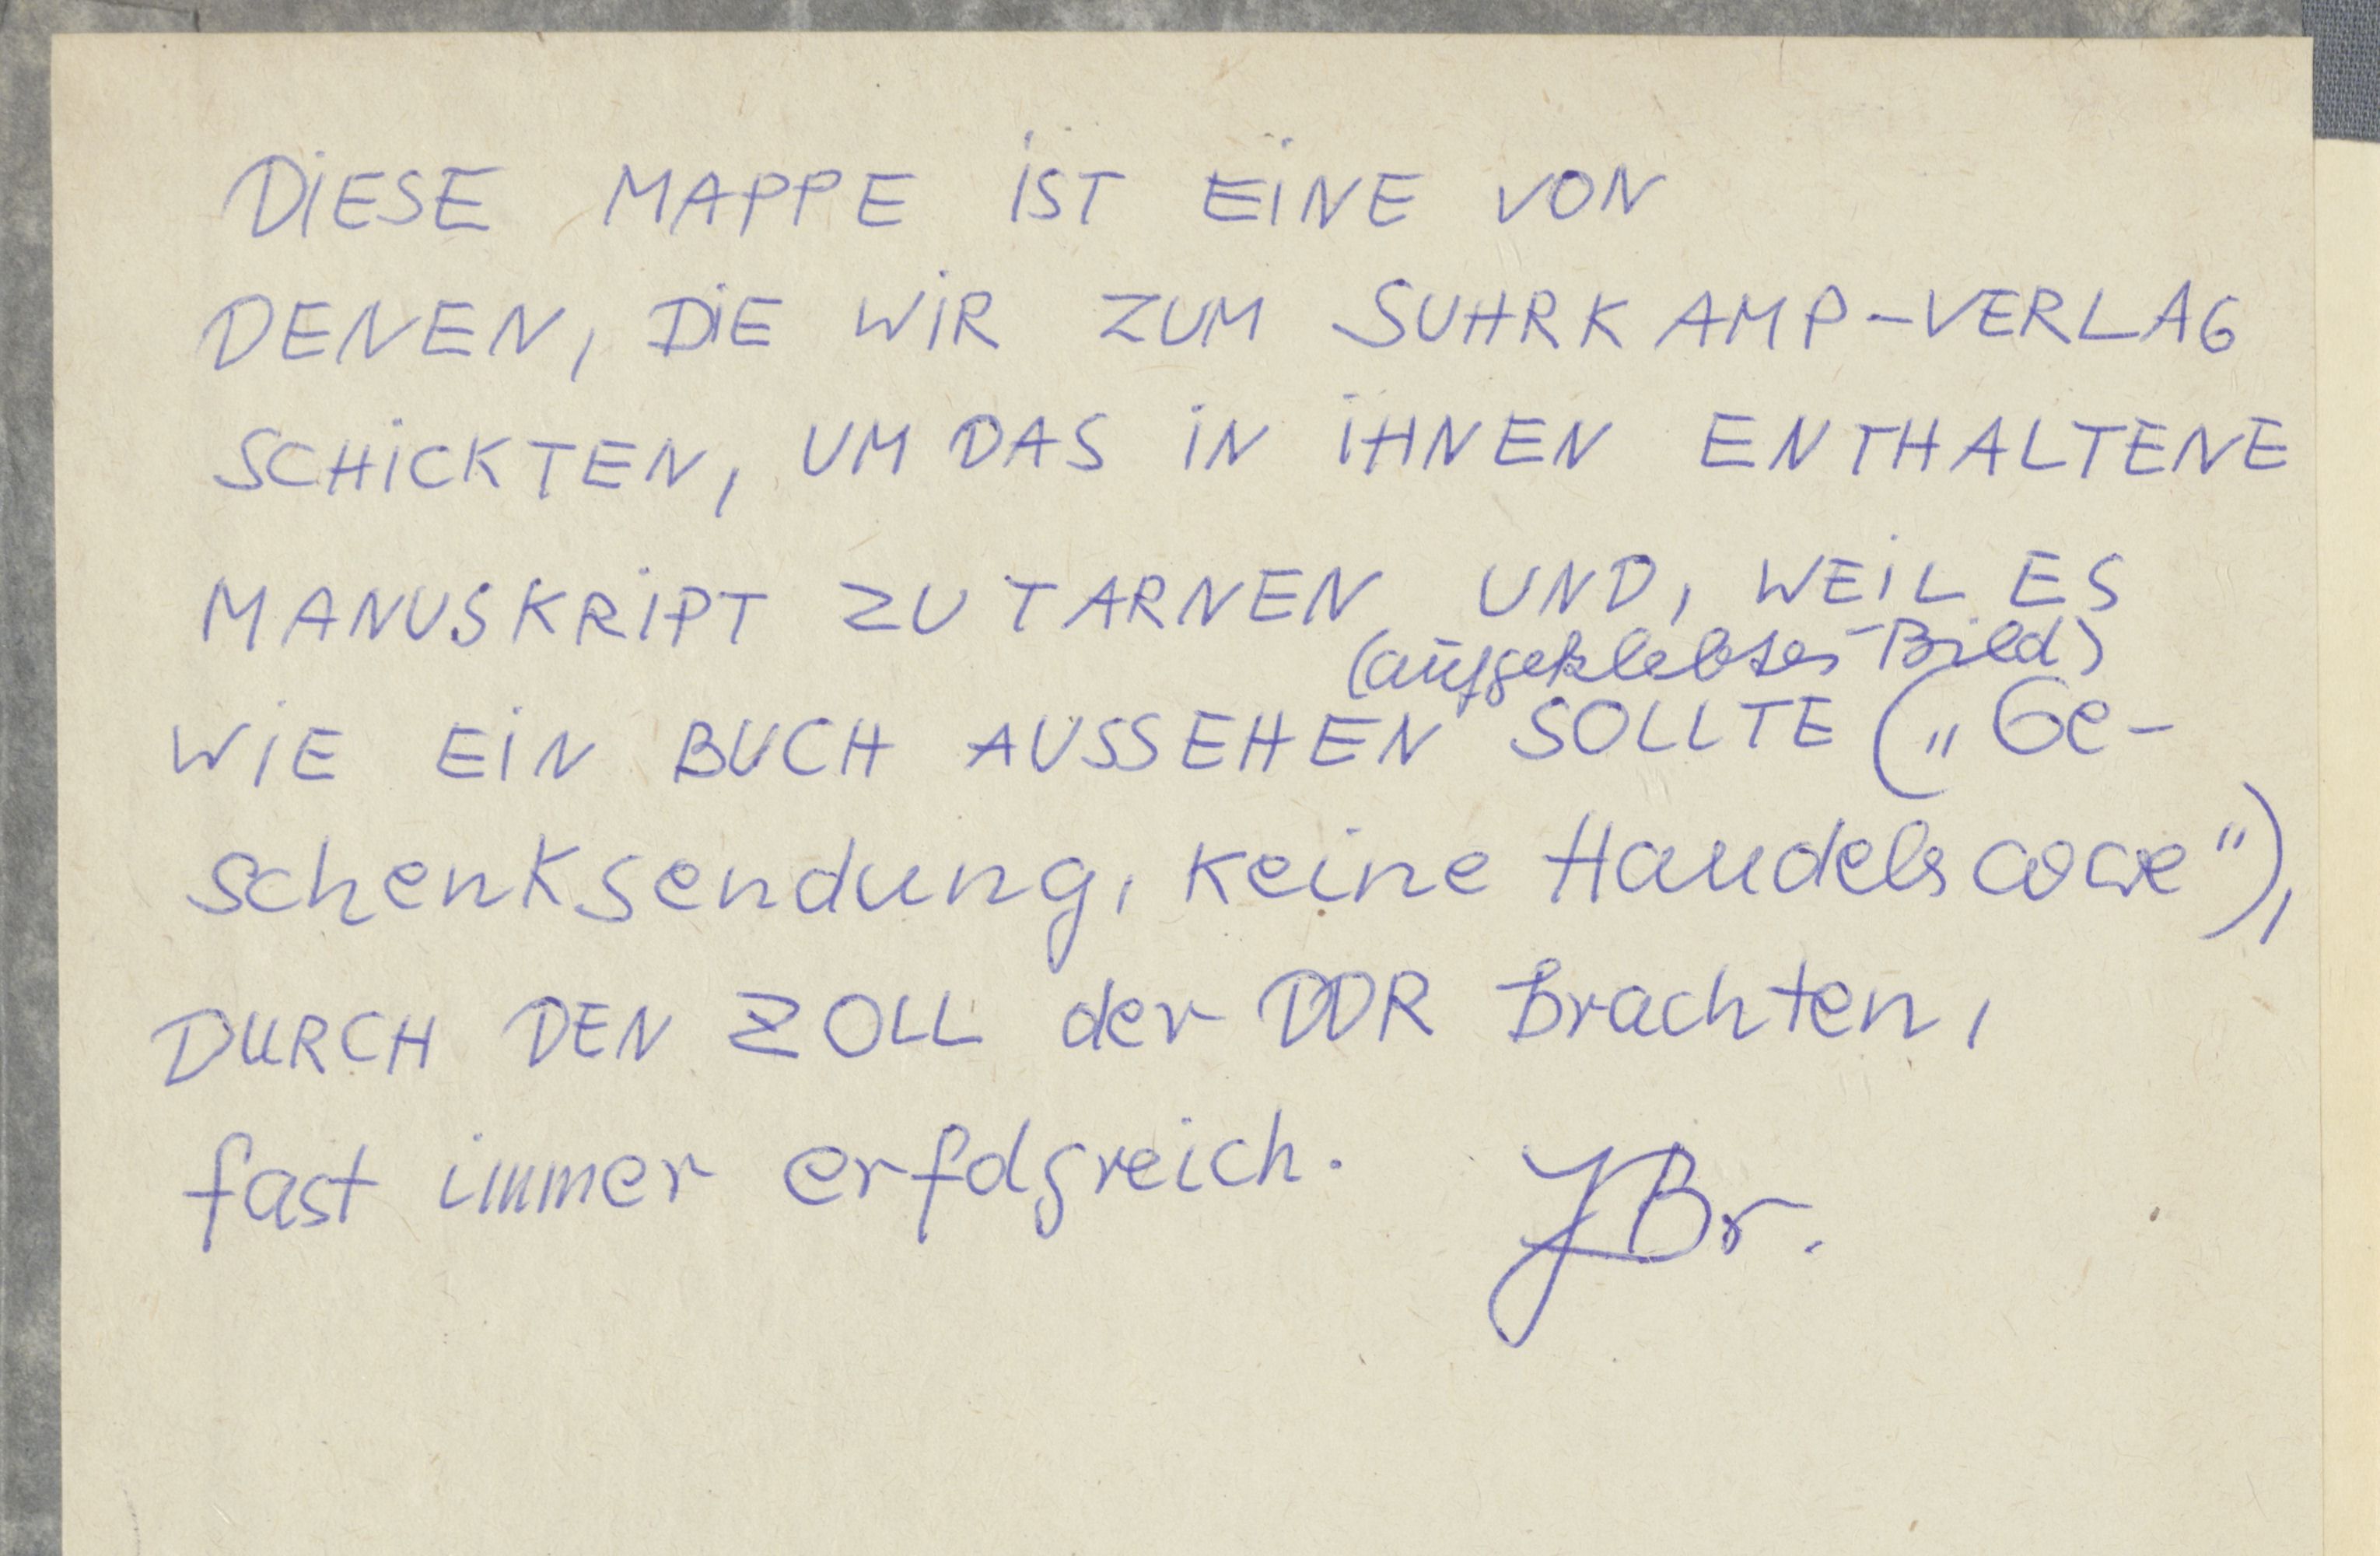 DIESE MAPPE IST EINE VON
DENEN, DIE WIR ZUM SUHRKAMP-VERLAG
SCHICKTEN, UM DAS IN IHNEN ENTHALTENE
MANUSKRIPT ZU TARNEN UND, WEIL ES
(aufgeklebtes Bild)
WIE EIN BUCH AUSSEHEN SOLLTE („Ge-
schenksendung, keine Handelsware"),
DURCH DEN ZOLL der DDR brachten,
fast immer erfolgreich. JBr.